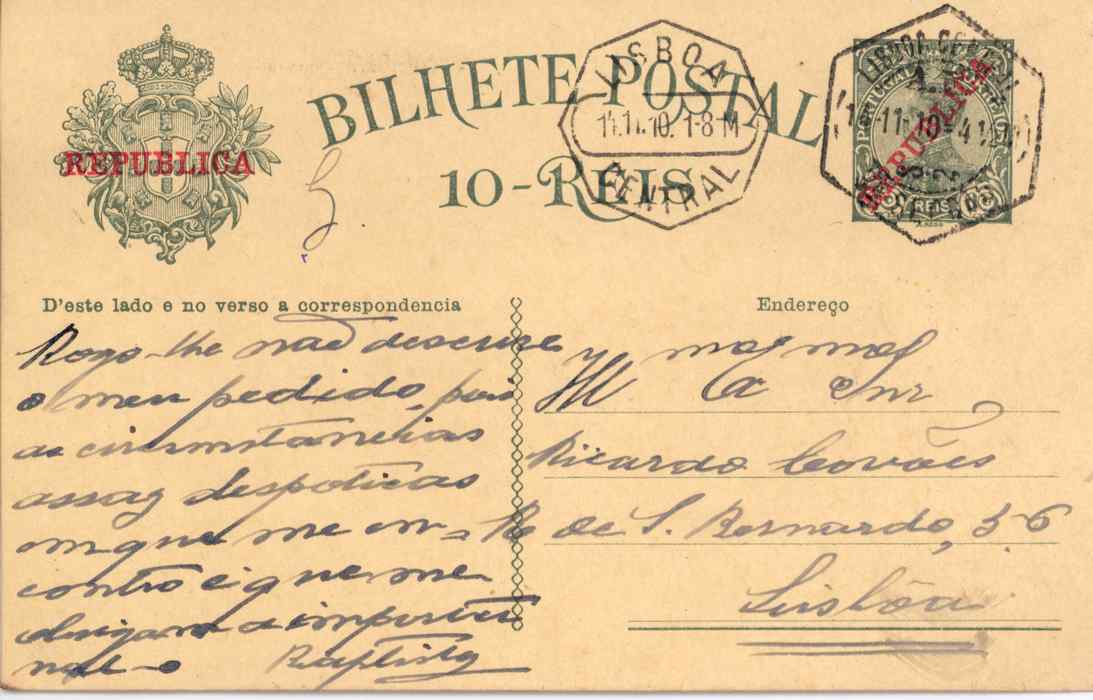 BILHETE POSTAL
10-REIS
REPUBLICA
LISBOA
11.11.10. 1-8 M
CENTRAL
LISBOA CENTRAL
PORTUGAL
REPUBLICA
REIS
D'este lado e no verso a correspondencia
Rogo-lhe não descure
o meu pedido, pois
as circunstancias
assaz despoticas
em que me en-
contro é que me
obrigam a importu
nal-o
Baptista
Endereço
Ill
Snr
Ricardo Covões
R de S. Bernardo, 56
Lisbôa